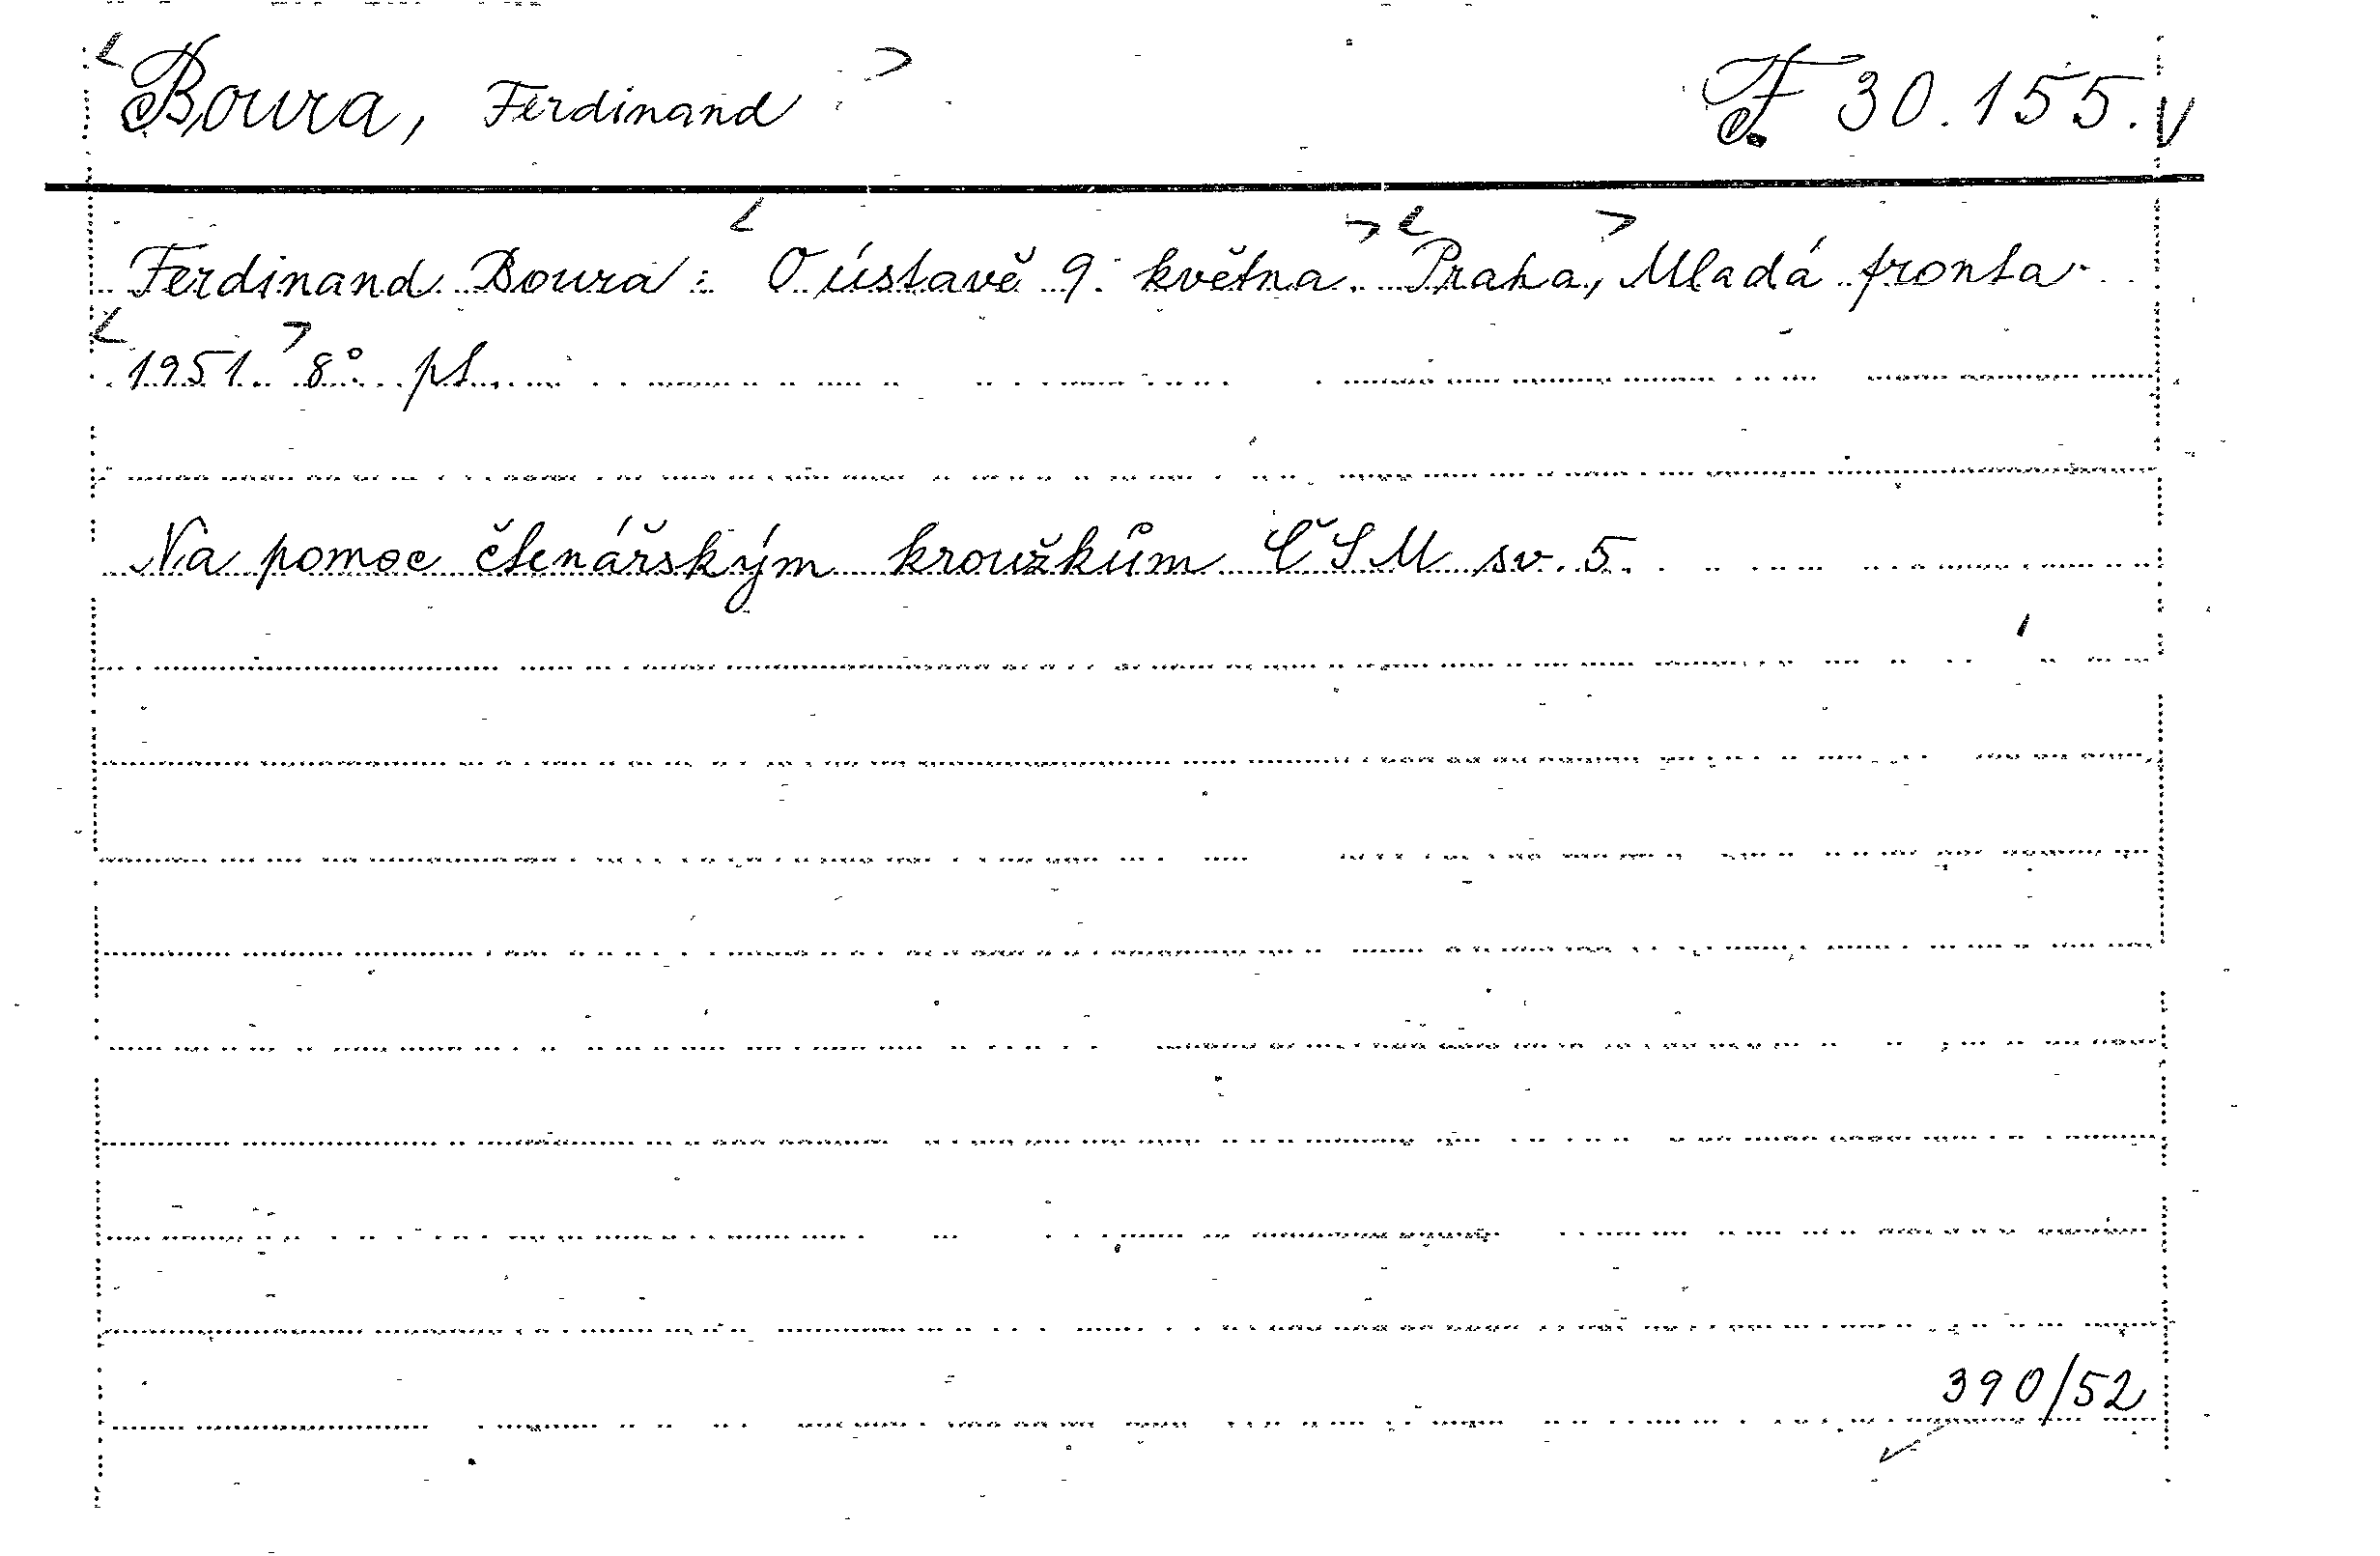 Boura, Ferdinand F 30.155.
Ferdinand Boura: O ústavě 9. května. Praha, Mladá fronta
1951. 8°. pt.
Na pomoc čtenářským kroužkům ČSM sv. 5.
390/52